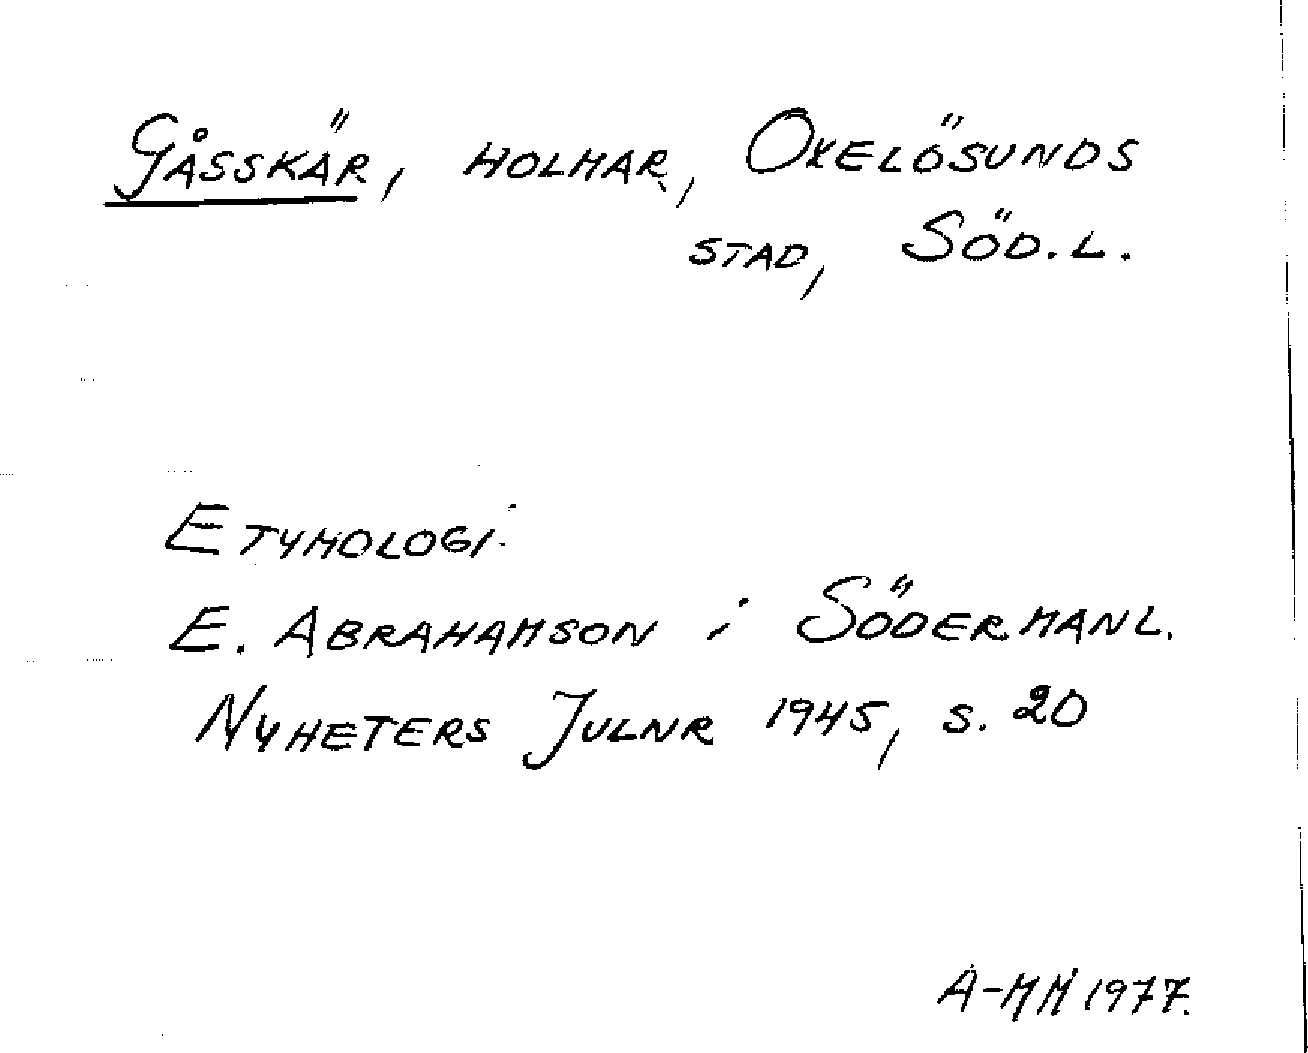 Gåsskär, holmar, Oxelösunds
stad, Söd.l.
Etymologi:
E. Abrahamson i Södermanl.
Nyheters Julnr 1945, s. 20
A-MM 1977.